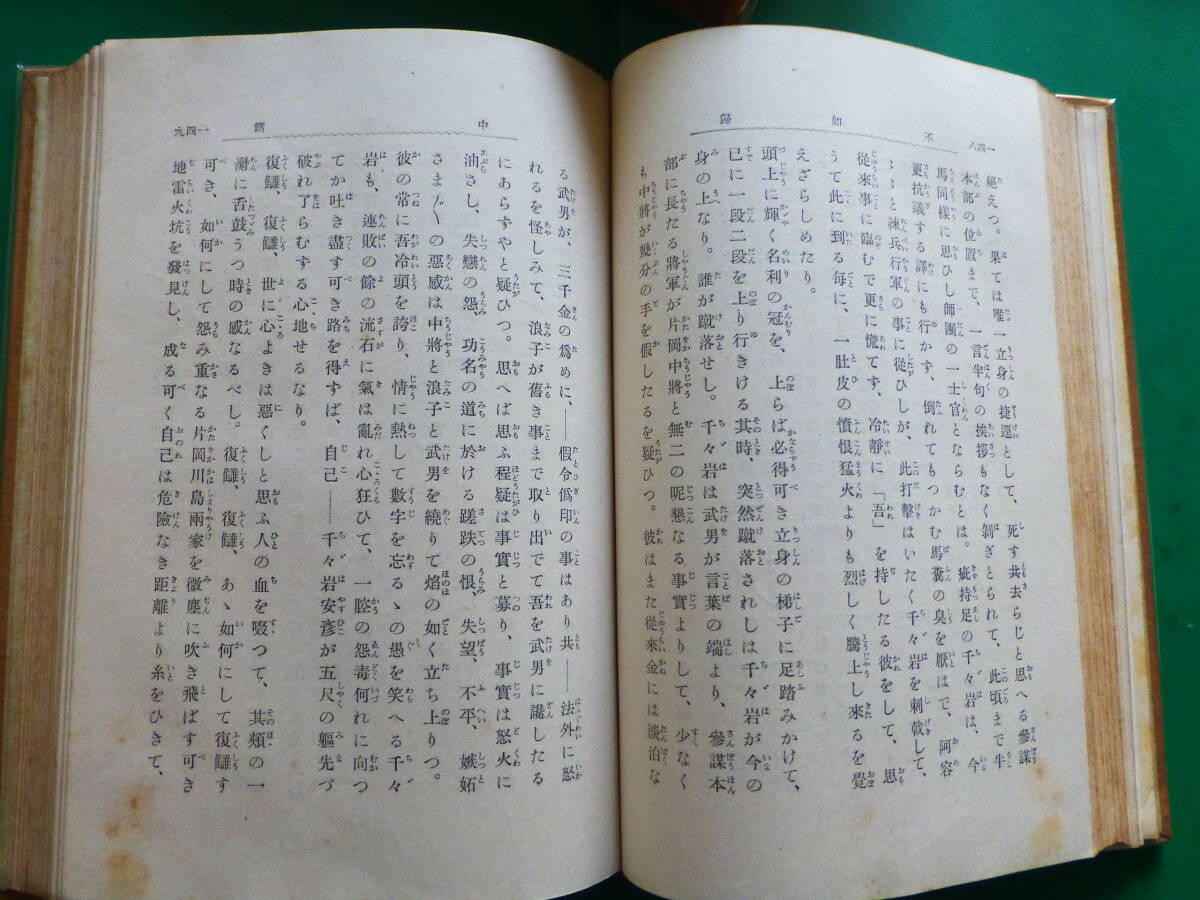 一四八
不如歸
絕えつ。果ては唯一立身の捷逕として、死す共去らじと思へる參謀
本部の位置まで、一言半句の挨拶もなく剝ぎとられて、此頃まで牛
馬同樣に思ひし師團の一士官とならむとは。疵持足の千々岩は、今
更抗議する譯にも行かず、倒れてもつかむ馬糞の臭を厭はで、阿容
〻〻と練兵行軍の事に從ひしが、此打擊はいたく千々岩を刺戟して、
從來事に臨むで更に慌てず、冷靜に「吾」を持したる彼をして、思
うて此に到る每に、一肚皮の憤恨猛火よりも烈しく騰上し來るを覺
えざらしめたり。
頭上に輝く名利の冠を、上らば必得可き立身の梯子に足踏みかけて、
已に一段二段を上り行きける其時、突然蹴落されしは千々岩が今の
身の上なり。誰が蹴落せし。千々岩は武男が言葉の端より、參謀本
部に長たる將軍が片岡中將と無二の昵懇なる事實よりして、少なく
も中將が幾分の手を假したるを疑ひつ。彼はまた從來金には淡泊な
中篇
一四九
る武男が、三千金の爲めに、――假令僞印の事はあり共――法外に怒
れるを怪しみて、浪子が舊き事まで取り出でて吾を武男に讒したる
にあらずやと疑ひつ。思へば思ふ程疑は事實と募り、事實は怒火に
油さし、失戀の怨、功名の道に於ける蹉跌の恨、失望、不平、嫉妬
さま〲の惡感は中將と浪子と武男を繞りて焰の如く立ち上りつ。
彼の常に吾冷頭を誇り、情に熱して數字を忘るゝの愚を笑へる千々
岩も、連敗の餘の流石に氣は亂れ心狂ひて、一腔の怨毒何れに向つ
てか吐き盡す可き路を得ずば、自己――千々岩安彥が五尺の軀先づ
破れ了らむずる心地せるなり。
復讎、復讎、世に心よきは惡くしと思ふ人の血を啜つて、其頰の一
臠に舌鼓うつ時の感なるべし。復讎、復讎、あゝ如何にして復讎す
可き、如何にして怨み重なる片岡川島兩家を微塵に吹き飛ばす可き
地雷火坑を發見し、成る可く自己は危險なき距離より糸をひきて、